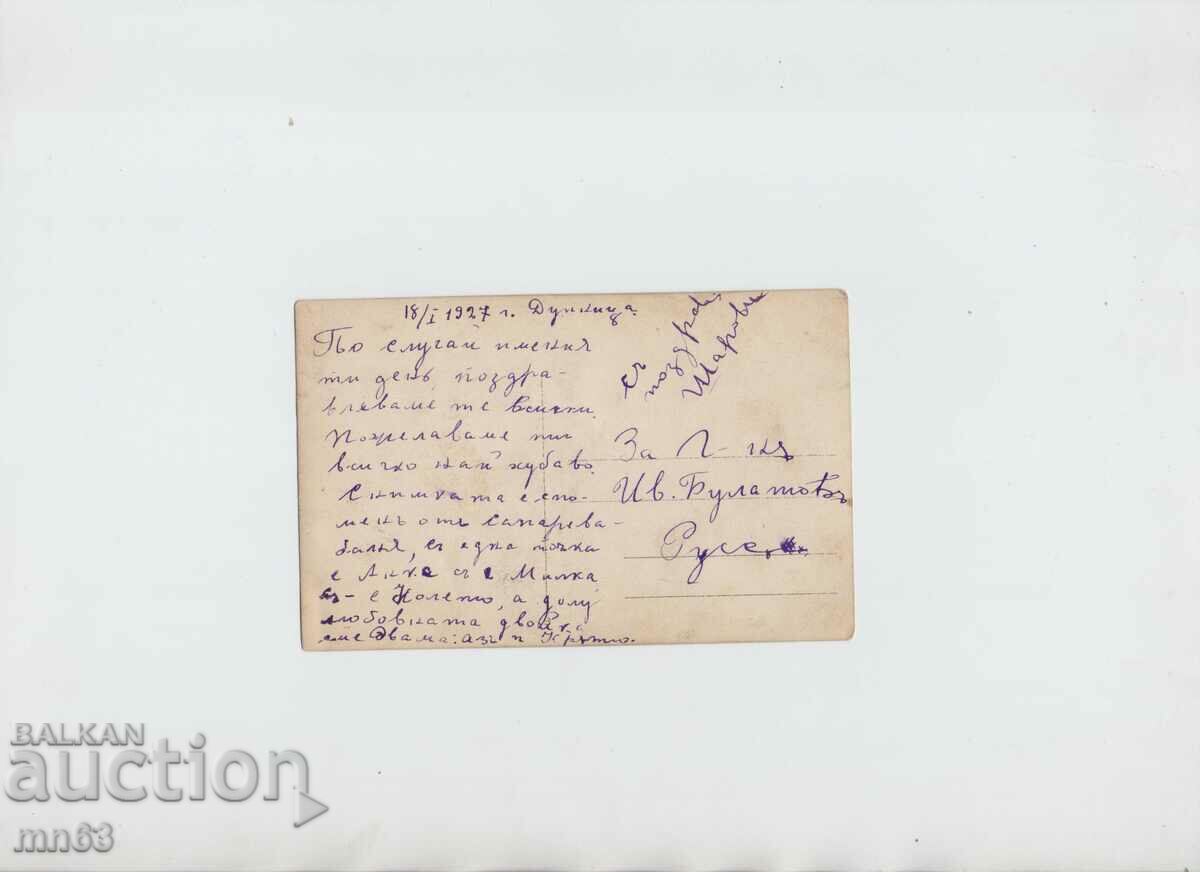 18/I 1927 г. Дупница.
По случай имения
ти день, поздра-
вляваме те всички.
Пожелаваме ти
всичко най хубаво.
Снимката е спо-
менъ отъ Сапарева-
баня, съ една точка
е Анче съ е Милка
съ - е Колето, а долу
любовната двойка
сме двама: азъ и Кръстю.
съ
поздрав
Шарови
За Г-нъ
Ив. Булатовъ
Руссе
BALKAN
auction
mn63